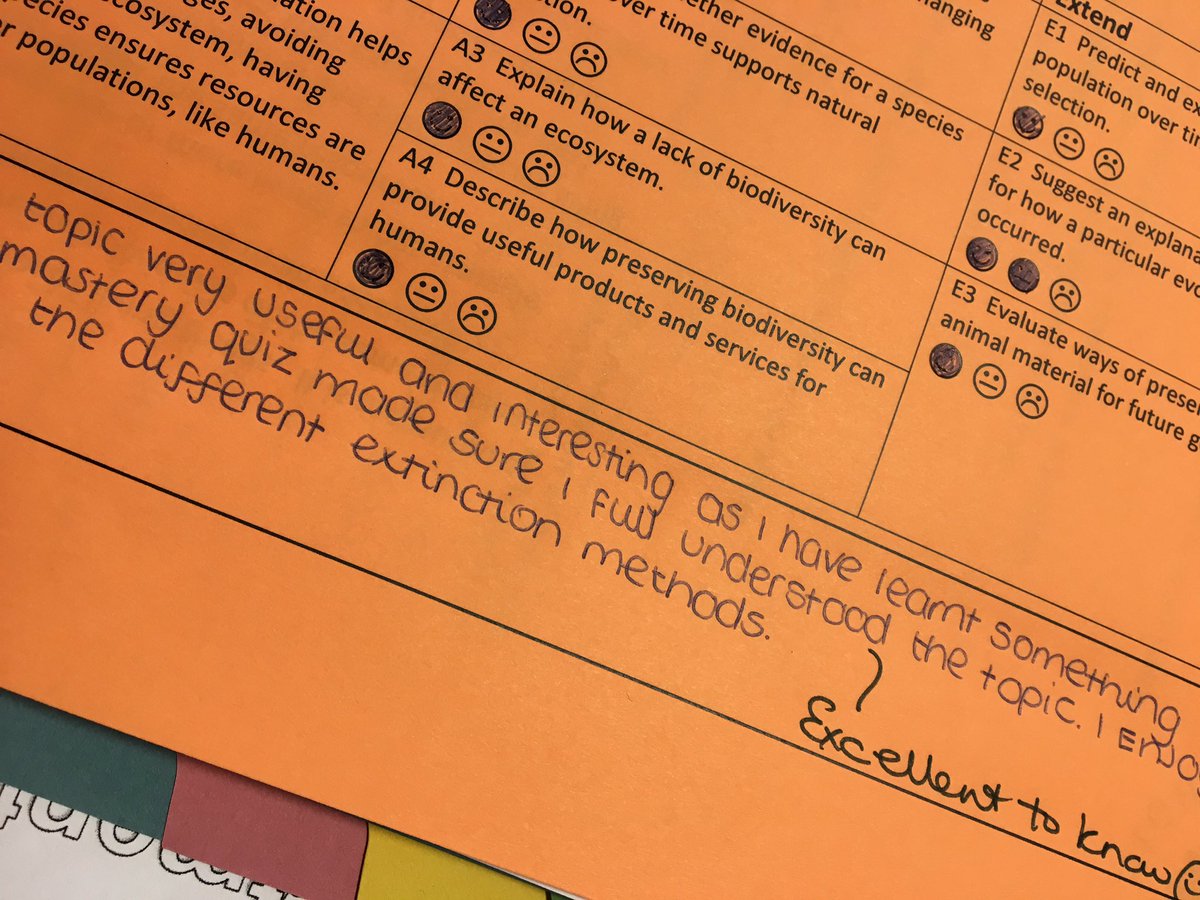 ation helps
ges, avoiding
cosystem, having
pecies ensures resources are
r populations, like humans.
ction.
A3 Explain how a lack of biodiversity can
affect an ecosystem.
A4 Describe how preserving biodiversity can
provide useful products and services for
humans.
ether evidence for a species
over time supports natural
hanging
Extend
E1 Predict and ex
population over tim
selection.
E2 Suggest an explana
for how a particular evo
occurred.
E3 Evaluate ways of prese
animal material for future g
topic very useful and interesting as I have learnt something
mastery quiz made sure I full understood the topic. I Enjoy
the different extinction methods.
Excellent to know